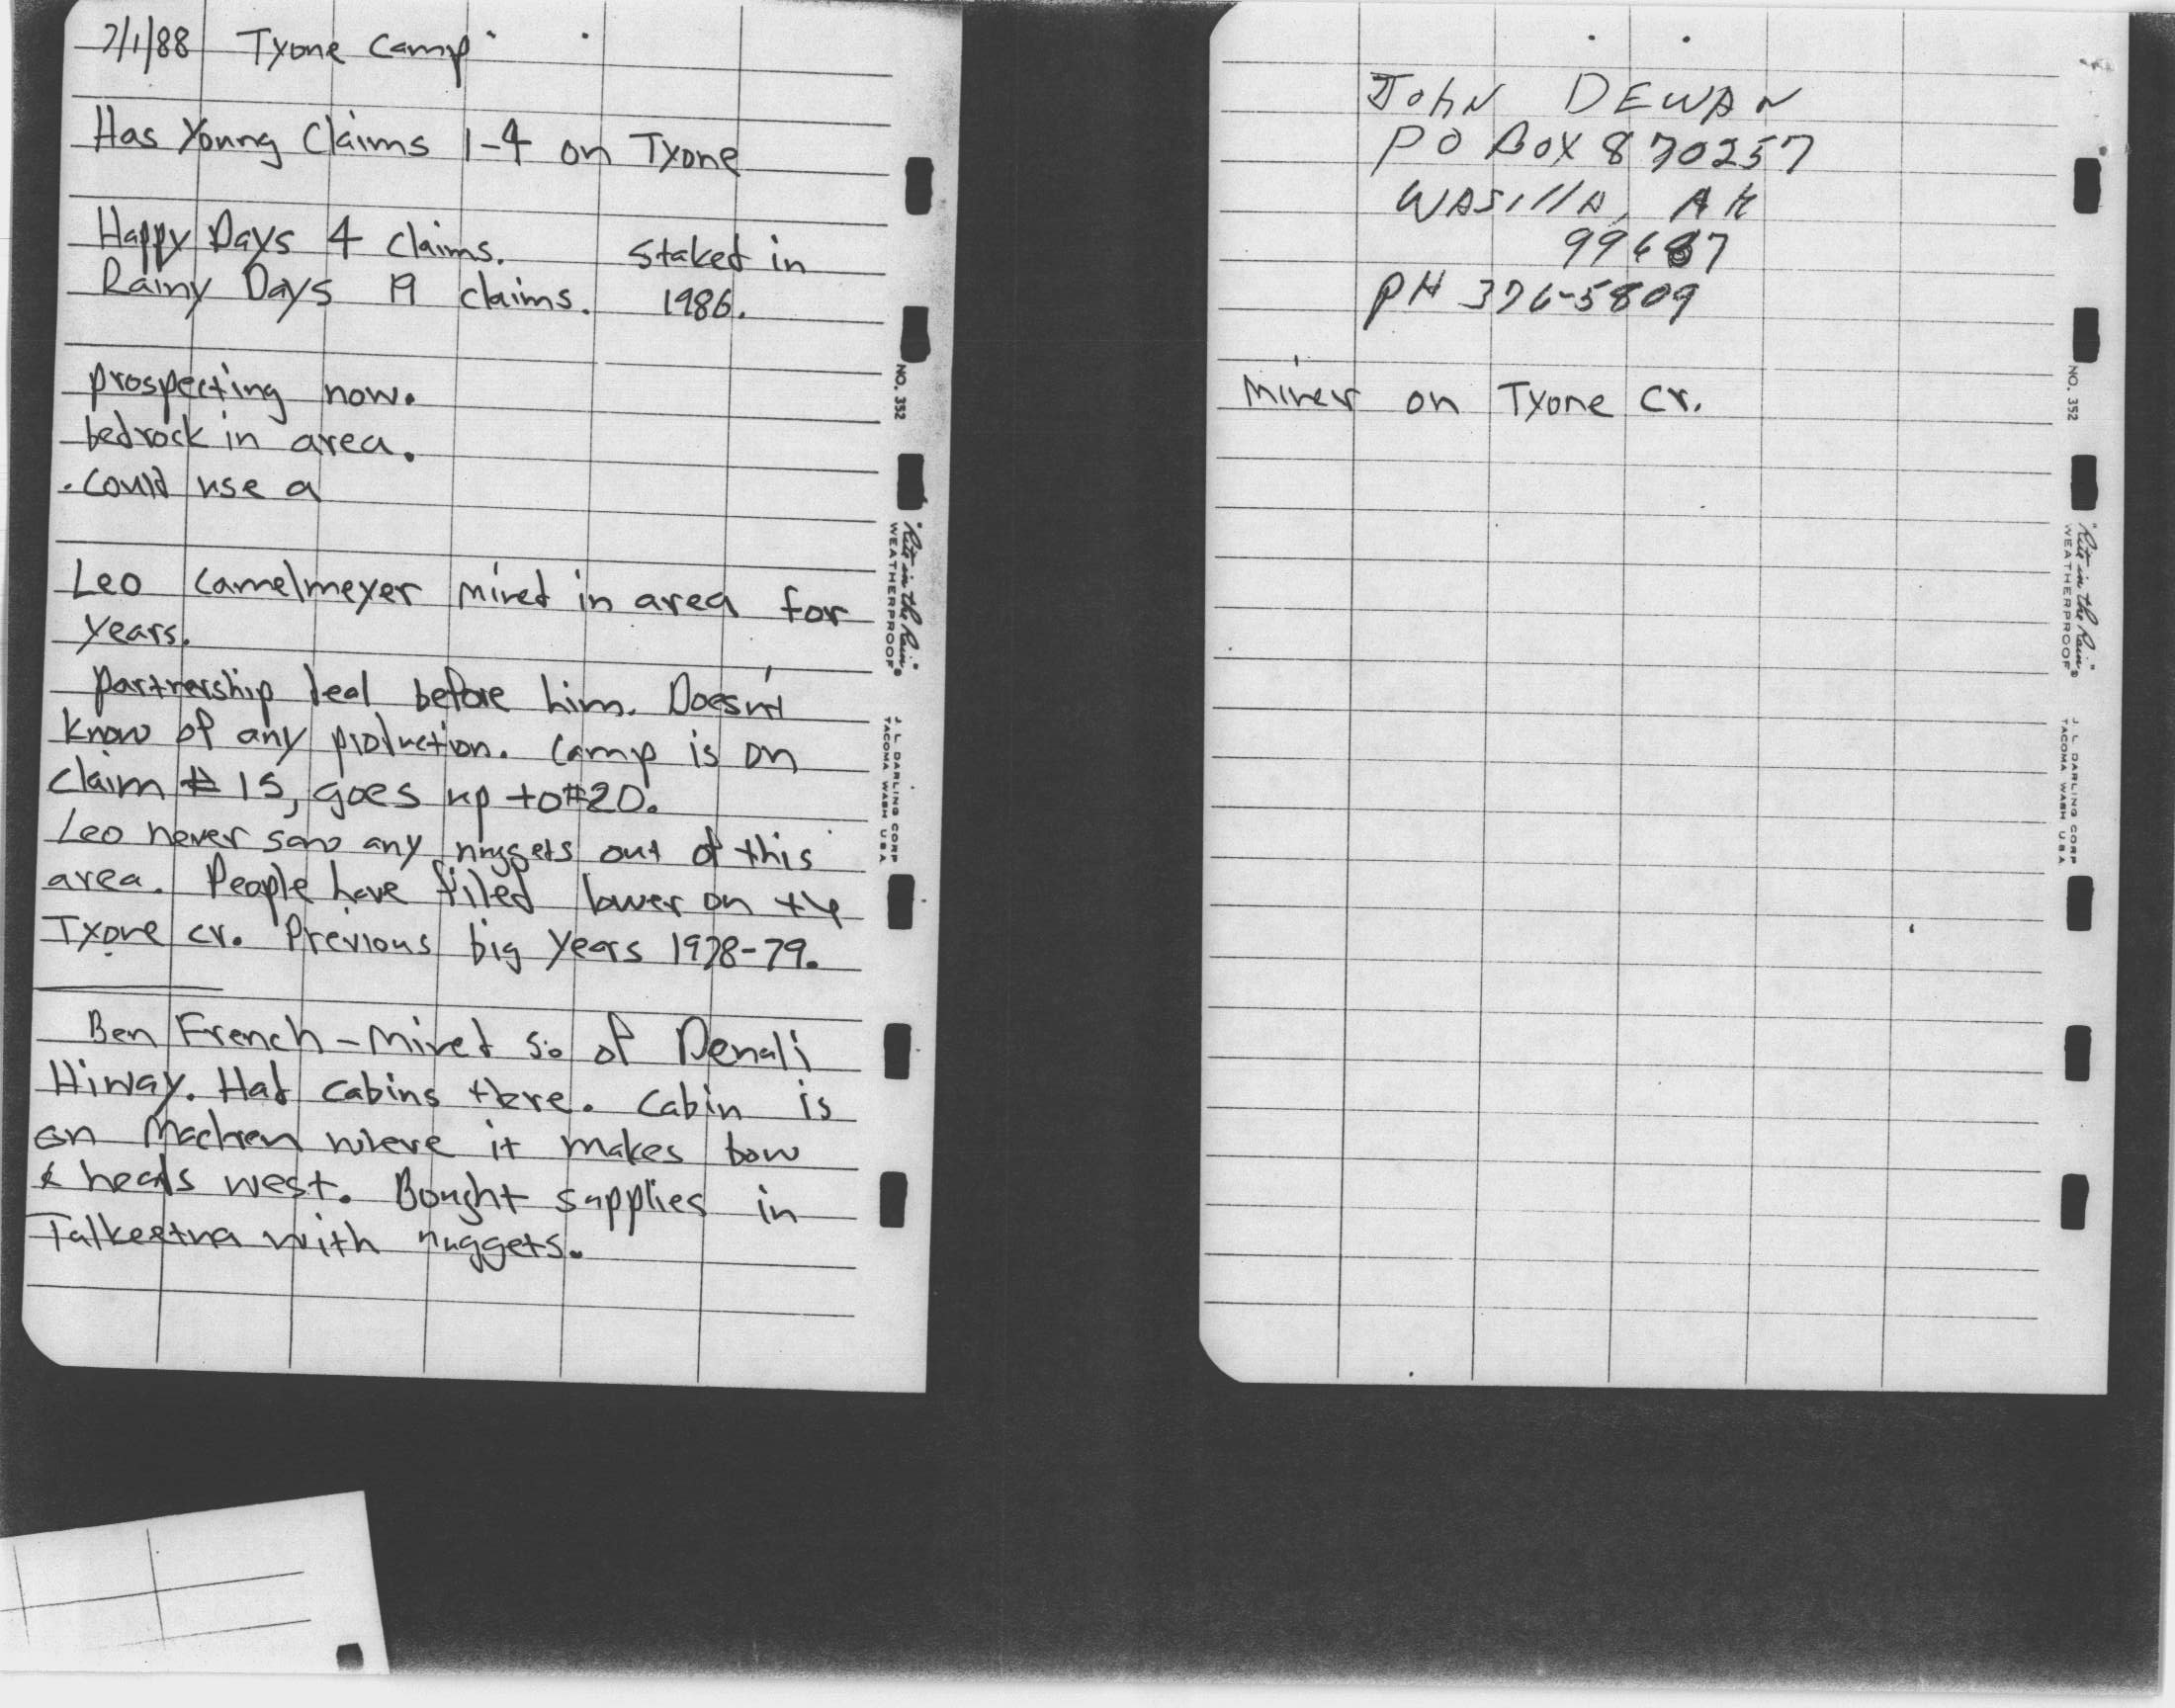 7/1/88 Tyone Camp
Has Young Claims 1-4 on Tyone
Happy Days 4 claims. Staked in
Rainy Days 19 claims. 1986.
prospecting now.
bedrock in area.
. could use a
Leo Camelmeyer mined in area for
years.
partnership deal before him. Doesn't
know of any production. Camp is on
claim # 15, goes up to #20.
Leo never saw any nuggets out of this
area. People have filed lower on
Tyone cr. Previous big years 1978-79.
Ben French - Mined so of Denali
Hiway. Had cabins there. Cabin is
on Maclren where it makes bow
& heads west. Bought supplies in
Talkeetna with nuggets.
NO. 352
"Rite in the Rain"®
WEATHERPROOF
J. L. DARLING CORP
TACOMA WASH U.S.A
JOHN DEWAN
PO BOX 870257
WASILLA, AK
99687
PH 376-5809
Miner on Tyone Cr.
NO. 352
"Rite in the Rain"®
WEATHERPROOF
J. L. DARLING CORP
TACOMA WASH U.S.A